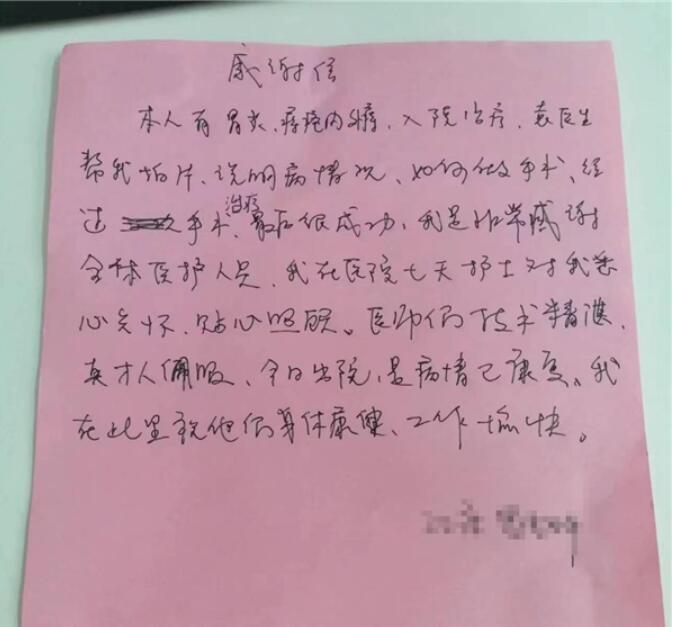 感谢信
本人有胃炎、痔疮内痔,入院治疗,袁医生
帮我拍片、说明病情况、如何做手术、经
过手术、治疗最后很成功,我是非常感谢
全体医护人员,我在医院七天护士对我悉
心关怀、贴心照顾。医师们技术精湛,
真才人佩服、今日出院,是病情已康复。我
在此里祝他们身体康健、工作愉快。